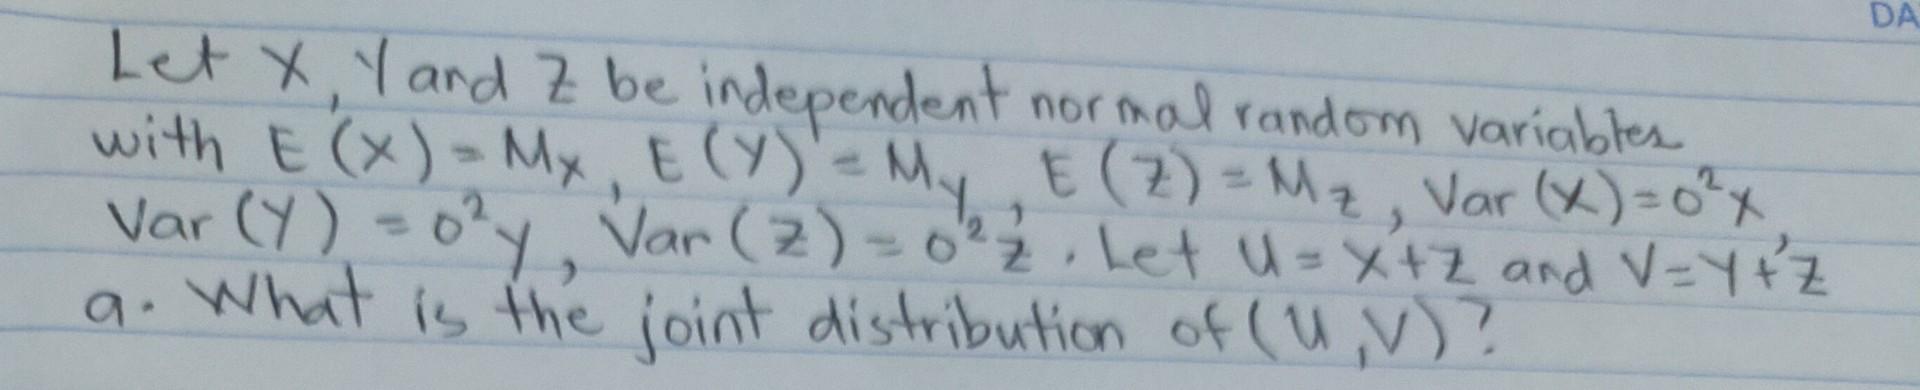 DA
Let X, Y and Z be independent normal random variables
with E(X) = Mx, E(Y) = My, E(Z) = Mz, Var(X) = σ²x,
Var(Y) = σ²y, Var(Z) = σ²z. Let U = X+Z and V=Y+Z
a. What is the joint distribution of (U,V)?